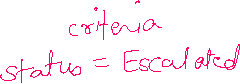 criteria
status = Escalated